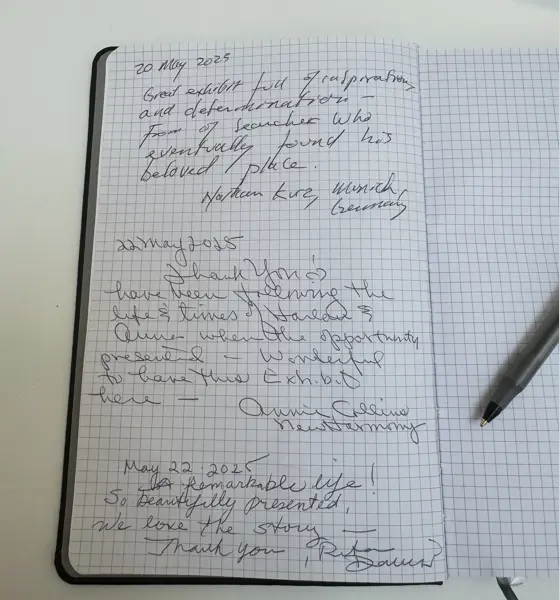 20 May 2025
Great exhibit full of inspiration,
and determination –
From of searcher who
eventually found his
beloved place.
Nathan Kurz, Munich,
Germany
22 May 2025
Thank You! I
have been following the
life & times of Harlan &
Anna when the opportunity
presented – Wonderful
to have this Exhibit
here –
Annie Collins
New Harmony
May 22 2025
A Remarkable life!
So beautifully presented,
we love the story —
Thank you,